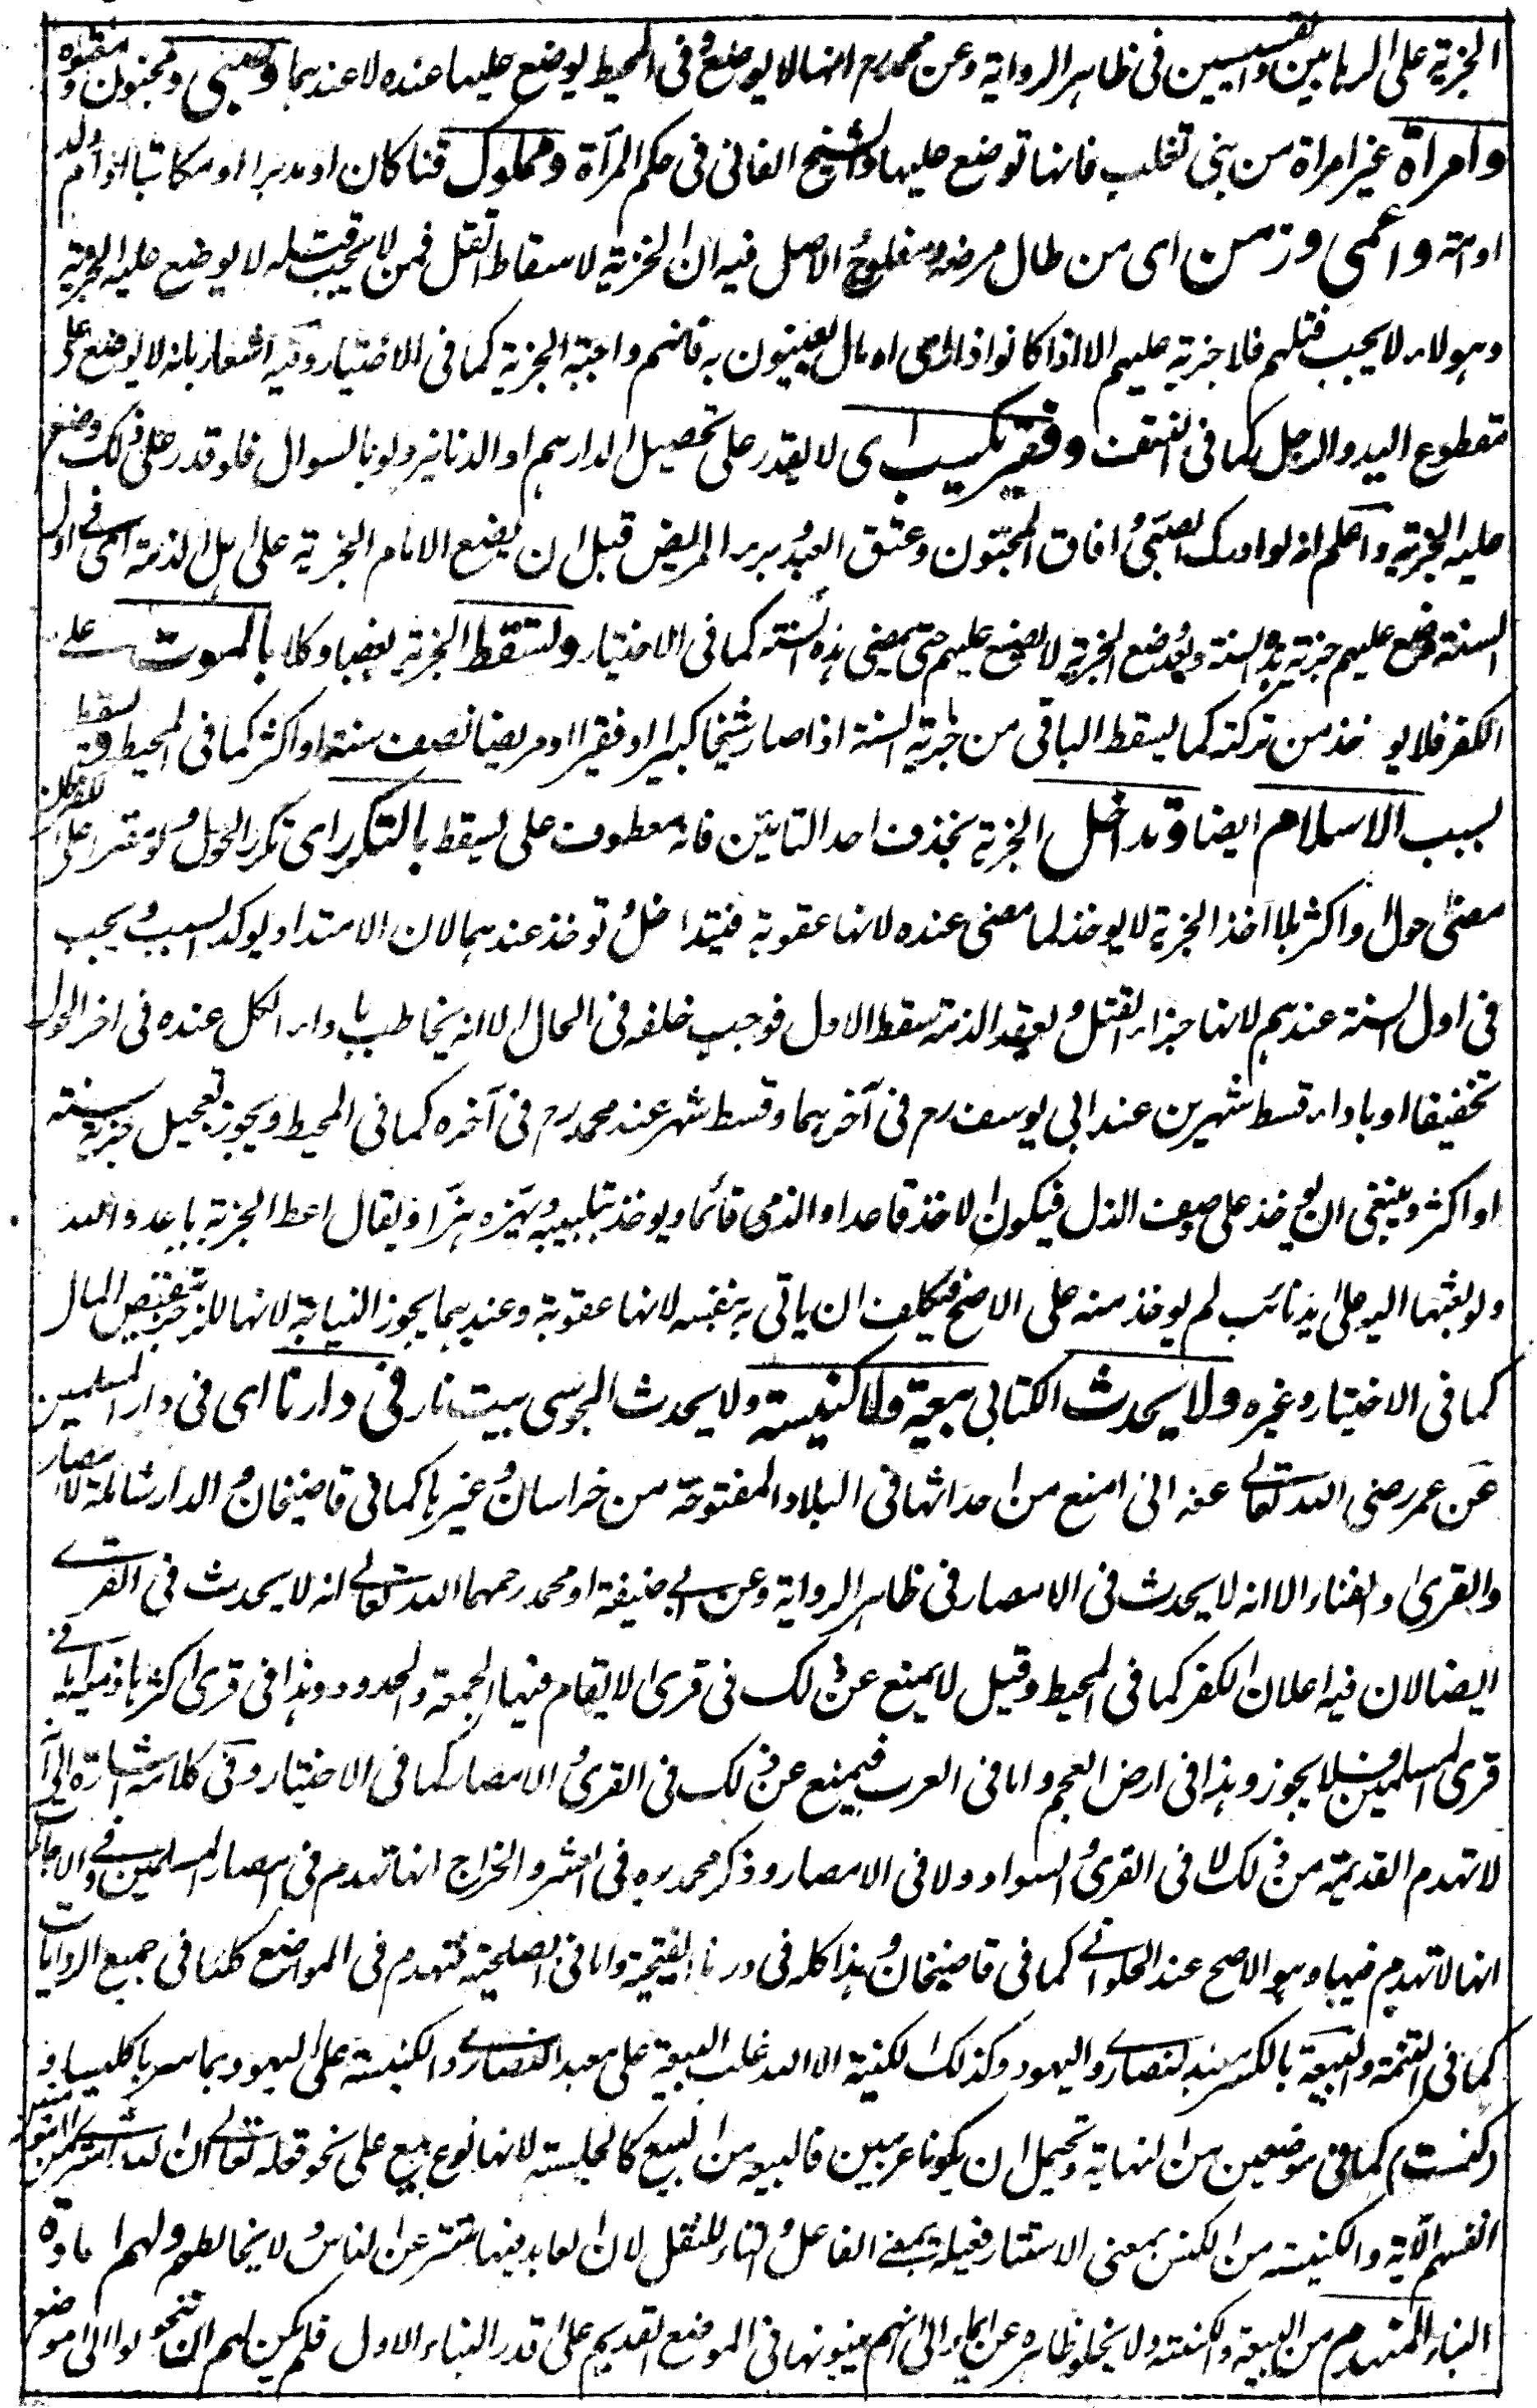 الجزية على الرهابين والقسيسين في ظاهر الرواية وعن محمد رح انها لا يوضع وفي المحيط يوضع عليها عنده لا عندهما وصبي ومجنون ومعتوه
وامراة غير امراة من بني تغلب فانها توضع عليها والشيخ الفاني في حكم المرآة ومملوك قنا كان او مدبرا او مكاتبا او ام ولد
او امته واعمى وزمن اى من طال مرضه ومفلوج الاصل فيه ان الجزية لاسقاط القتل فمن لا يجب قتله لا يوضع عليه الجزية
وهولاء لا يجب قتلهم فلا جزية عليهم الا اذا كانوا ذا راى او مال يعينون به فانهم واجبة الجزية كما في الاختيار وفيه اشعار بانه لا يوضع على
مقطوع اليد والرجل كما في النتف وفقير يكسب اى لا يقدر على تحصيل الدراهم او الدنانير ولو بالسوال فلو قدر على ذلك وضع
عليه الجزية واعلم انه لو ادرك الصبي وافاق المجنون وعتق العبد وبرء المريض قبل ان يضع الامام الجزية على اهل الذمة اى في اول
السنة وضع عليهم جزية هذه السنة وبعد وضع الجزية لا يضع عليهم حتى يمضي هذه السنة كما في الاختيار ولتسقط الجزية بعضا وكلا بالموت على
الكفر فلا يوخذ من تركته كما يسقط الباقي من جزية السنة اذا صار شيخا كبيرا او فقيرا او مريضا نصف سنة او اكثر كما في المحيط وتسقط
بسبب الاسلام ايضا وتداخل الجزية بحذف احد التائين فانه معطوف على يسقط بالتكرر اى تكرر الحول
مضى حول او اكثر بلا اخذ الجزية لا يوخذ لما مضى عنده لانها عقوبة فيتداخل وتوخذ عندهما لان الامتداد يوكد السبب ويجب
في اول السنة عندهم لانها جزاء القتل وبعقد الذمة سقط الاول فوجب خلفه في الحال الا انه يخاطب باداء الكل عنده في اخر الحول
تخفيفا او باداء قسط شهرين عند ابي يوسف رح في آخرهما وقسط شهر عند محمد رح في آخره كما في المحيط ويجوز تعجيل جزية سنة
او اكثر وينبغي ان يوخذ على وصف الذل فيكون الاخذ قاعدا والذمي قائما ويوخذ بتلبيبه ويهزه هزا ويقال اعط الجزية يا عدو الله
ولو بعثها اليه على يد نائب لم يوخذ منه على الاصح فيكلف ان ياتي به بنفسه لانها عقوبة وعندهما يجوز النيابة لانها للزجر بتنقيص المال
كما في الاختيار وغيره ولا يحدث الكتابي بيعة ولا كنيسة ولا يحدث المجوسي بيت نار في دارنا اى في دار المسلمين
عن عمر رضي الله تعالى عنه اني امنع من احداثها في البلاد المفتوحة من خراسان وغيرها كما في قاضيخان والدار شاملة للامصار
والقرى والفناء الا انه لا يحدث في الامصار في ظاهر الرواية وعن ابي حنيفة او محمد رحمهما الله تعالى انه لا يحدث في القرى
ايضا لان فيه اعلان الكفر كما في المحيط وقيل لا يمنع عن ذلك في قرى لا يقام فيها الجمعة والحدود وهذا في قرى اكثرها ذمية اما في
قرى المسلمين فلا يجوز وهذا في ارض العجم واما في العرب فيمنع عن ذلك في القرى والامصار كما في الاختيار وفي كلامه اشارة الى ان
لا تهدم القديمة من ذلك لا في القرى والسواد ولا في الامصار وذكر محمد رح في العشر والخراج انها تهدم في امصار المسلمين وفي الاجارات
انها لا تهدم فيها وهو الاصح عند الحلواني كما في قاضيخان وهذا كله في دورنا الفتحية واما في الصلحية فتهدم في المواضع كلها في جميع الروايات
كما في التتمة والبيعة بالكسر معبد النصارى واليهود وكذلك الكنيسة الا انه غلب البيعة على معبد النصارى والكنيسة على اليهود
كما في موضعين من النهاية وتحتمل ان يكونا عربيين فالبيعة من البيع كالجلسة لانها نوع بيع على نحو قوله تعالى ان الله اشترى من المومنين
انفسهم الآية والكنيسة من الكنس بمعنى الاستتار فعيلة بمعنى الفاعل والتاء للنقل لان العابد فيها يتستر عن الناس ولا يخالطهم ولهم اعادة
البناء المنهدم من البيعة والكنيسة ولا يخلو ظاهره عن ايماء الى انهم يبنونها في الموضع القديم على قدر البناء الاول فلم يكن لهم ان يتحولوا الى موضع